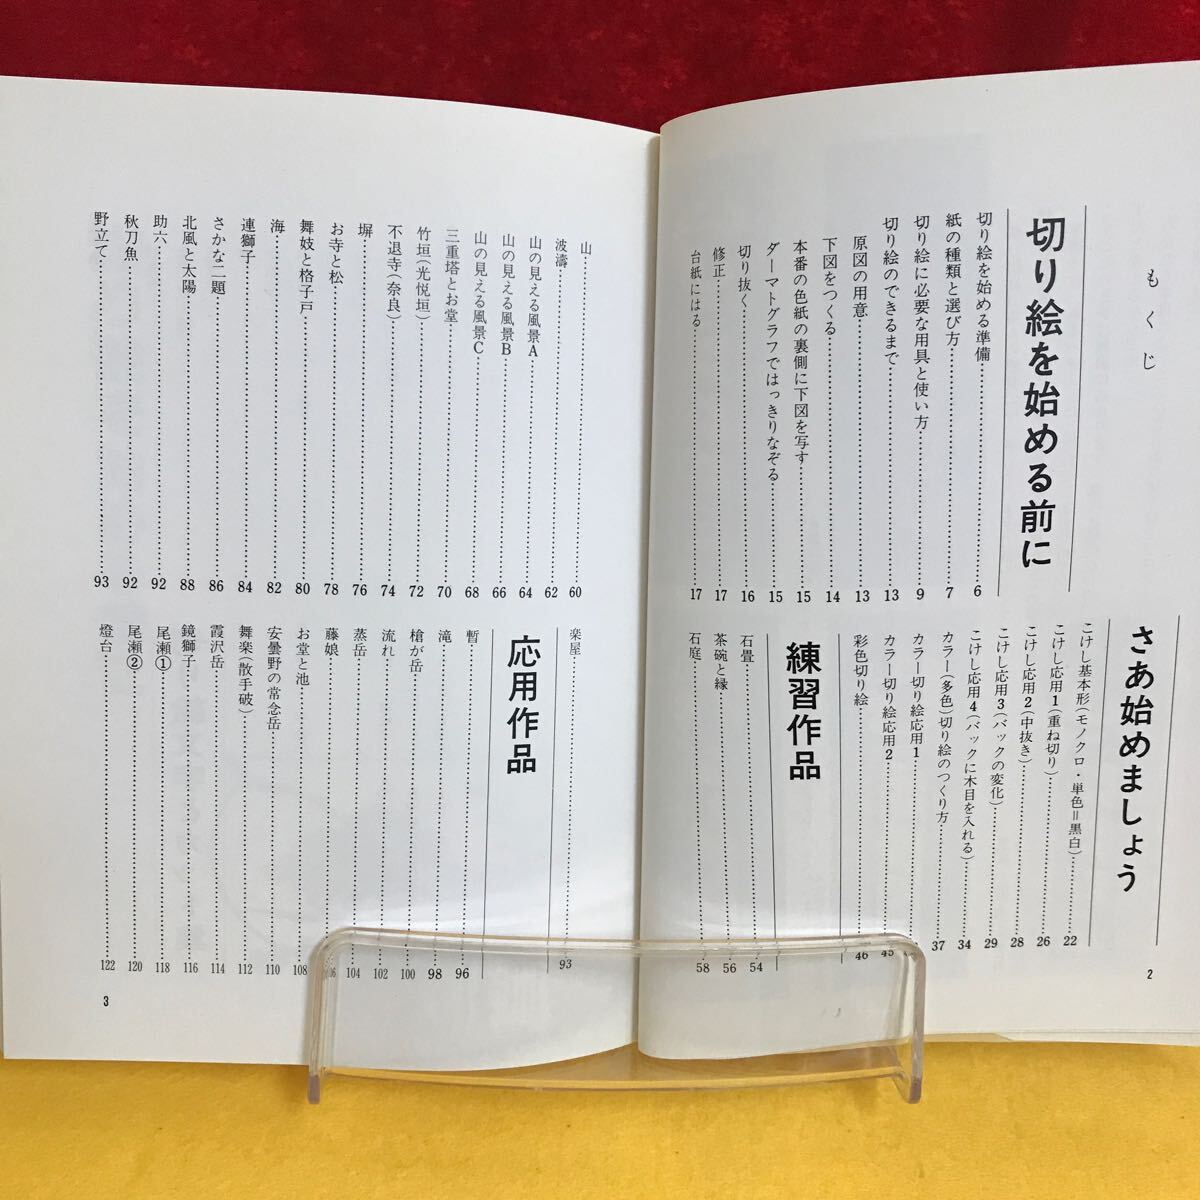 もくじ
切り絵を始める前に
切り絵を始める準備 6
紙の種類と選び方 7
切り絵に必要な用具と使い方 9
切り絵のできるまで 13
原図の用意 13
下図をつくる 14
本番の色紙の裏側に下図を写す 15
ダーマトグラフではっきりなぞる 15
切り抜く 16
修正 17
台紙にはる 17
さあ始めましょう
こけし基本形(モノクロ・単色=黒白) 22
こけし応用1(重ね切り) 26
こけし応用2(中抜き) 28
こけし応用3(バックの変化) 29
こけし応用4(バックに木目を入れる) 34
カラー(多色)切り絵のつくり方 37
カラー切り絵応用1
カラー切り絵応用2 45
彩色切り絵 46
練習作品
石畳 54
茶碗と縁 56
石庭 58
2
山 60
波濤 62
山の見える風景A 64
山の見える風景B 66
山の見える風景C 68
三重塔とお堂 70
竹垣(光悦垣) 72
不退寺(奈良) 74
塀 76
お寺と松 78
舞妓と格子戸 80
海 82
連獅子 84
さかな二題 86
北風と太陽 88
助六 92
秋刀魚 92
野立て 93
楽屋 93
応用作品
暫 96
滝 98
槍が岳 100
流れ 102
蒸岳 104
藤娘 106
お堂と池 108
安曇野の常念岳 110
舞楽(散手破) 112
霞沢岳 114
鏡獅子 116
尾瀬① 118
尾瀬② 120
燈台 122
3